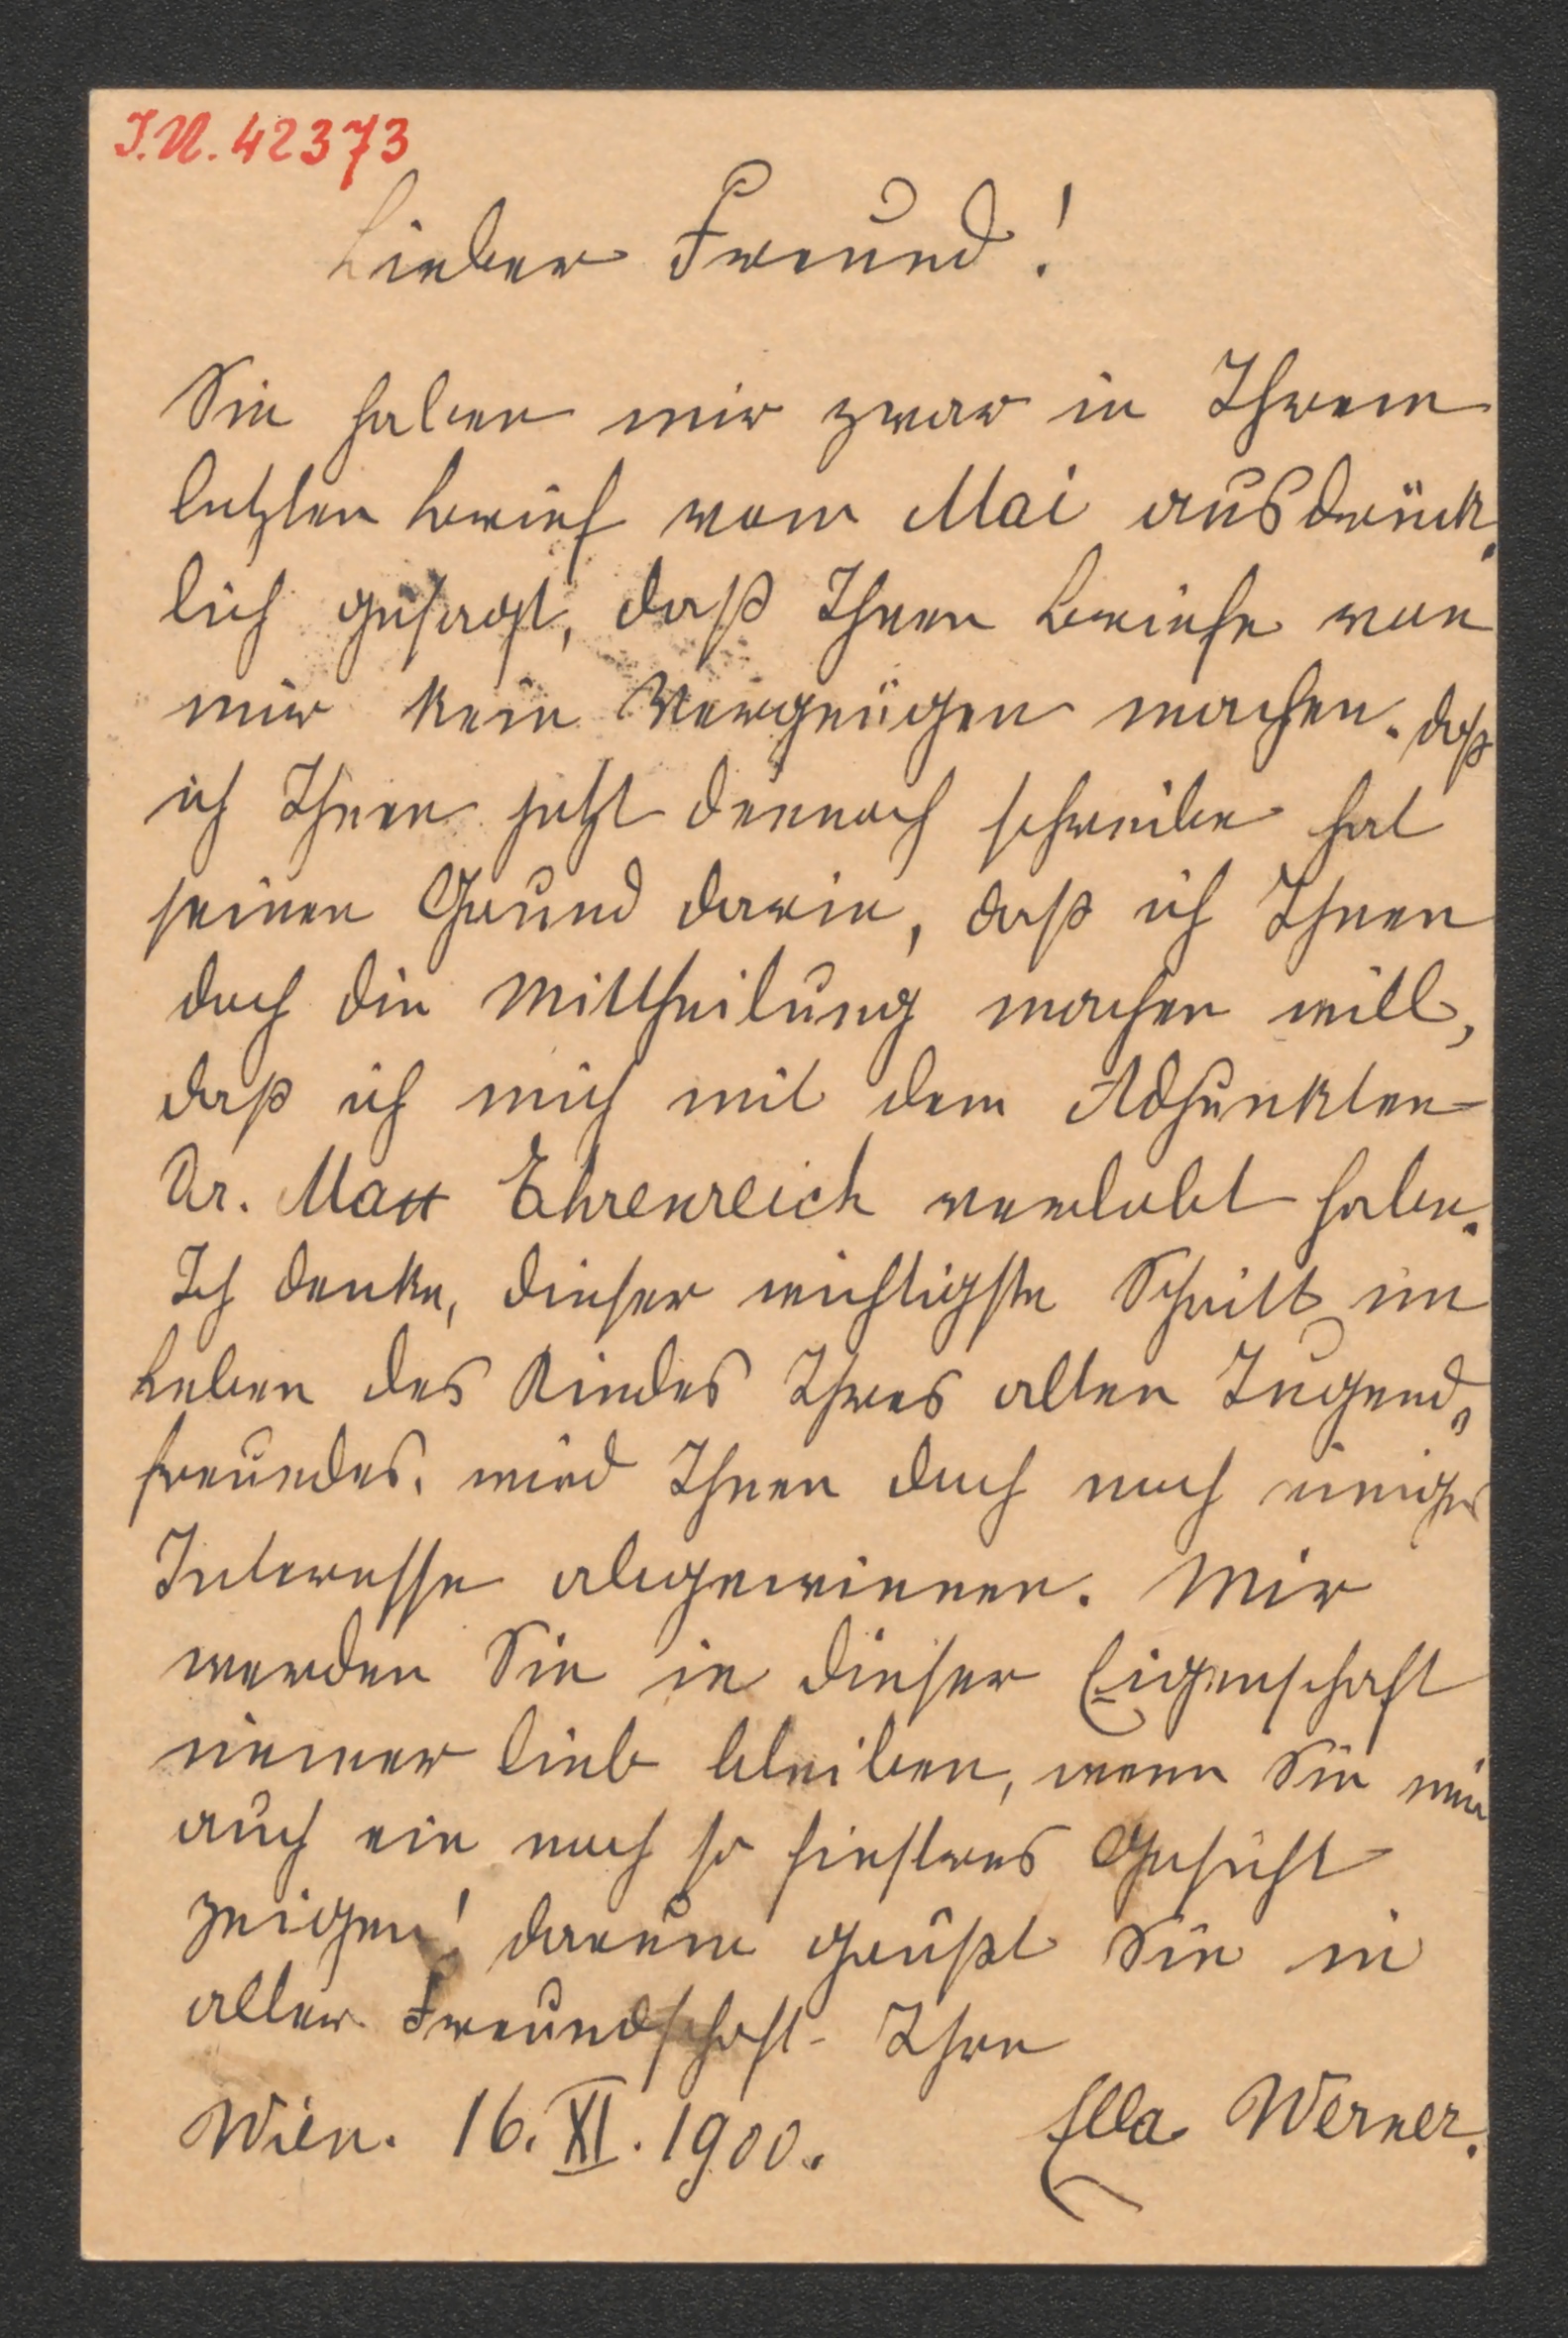 I.N. 42373
Lieber Freund!
Sie haben mir zwar in Ihrem
letzten Brief vom Mai ausdrück-
lich gesagt, daß Ihnen Briefe von
mir kein Vergnügen machen. Daß
ich Ihnen jetzt dennoch schreibe hat
seinen Grund darin, daß ich Ihnen
doch die Mittheilung machen will,
daß ich mich mit dem Adjunkten
Dr. Max Ehrenreich verlobt habe.
Ich denke, dieser wichtigste Schritt im
Leben des Kindes Ihres alten Jugend-
freundes, wird Ihnen doch noch einiges
Interesse abgewinnen. Mir
werden Sie in dieser Eigenschaft
immer lieb bleiben, wenn Sie mir
auch ein noch so finstres Gesicht
zeigen! Darum grüßt Sie in
aller Freundschaft Ihre
Wien. 16. XI. 1900. Ella Werner.